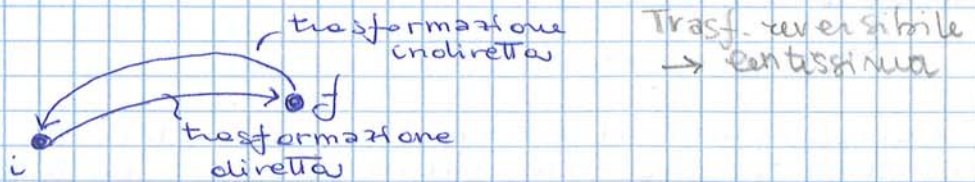 trasformazione
indiretta
Trasf. reversibile
→ lentissima
f
trasformazione
diretta
i